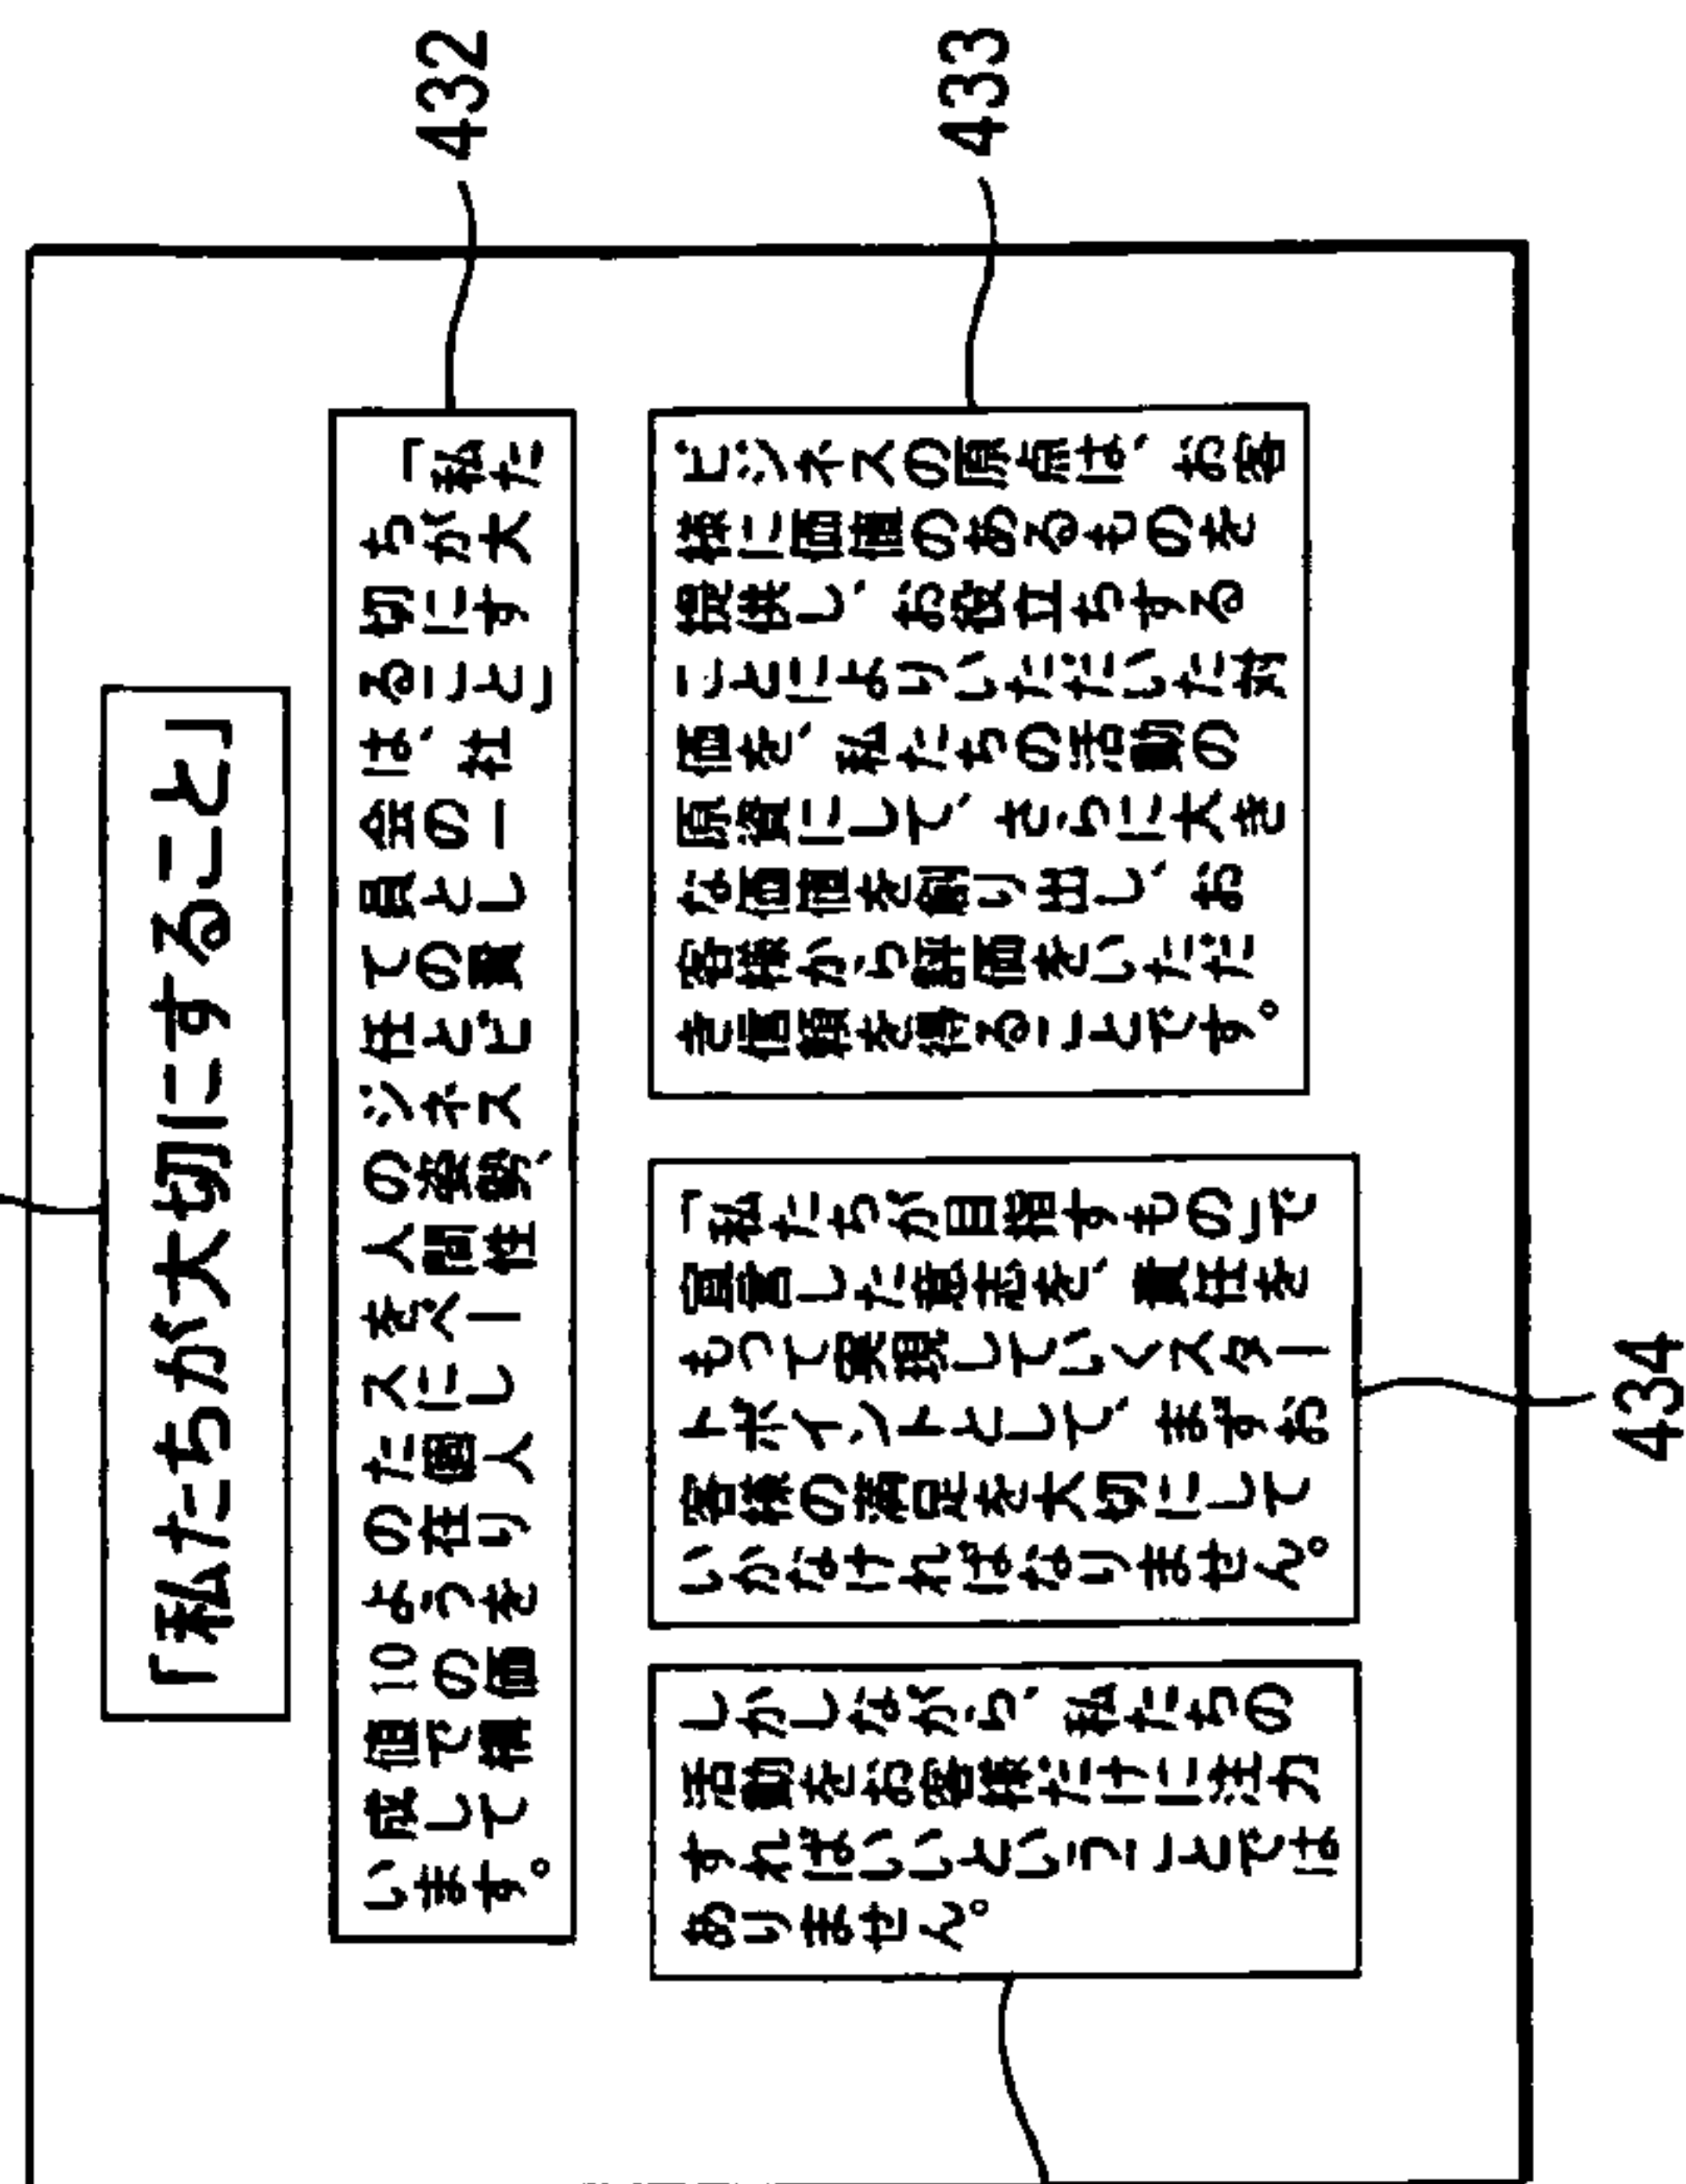 「私たちが大切にすること」
「私た
ちが大
切にす
ること」
は、社
会の一
員とし
ての責
任とビ
ジネス
の姿勢、
人間性
をベー
スにし
た個人
の在り
ようを
10の価
値で構
成して
います。
432
ビジネスの原点は、お客
様に価値のあるものを
提供し、お役立ちする
ことによりいただいた対
価を、私たちの活動の
原資にして、さらに大き
な価値を創り出し、お
客様から評価をいただ
き信頼を得ることです。
433
「私たちが目指すもの」で
宣言した意志を、責任を
もって実現していくスター
トポイントとして、まずお
客様の満足を大切にして
いかなければなりません。
434
しかしながら、私たちの
活動をお客様だけに注力
すればいいということでは
ありません。